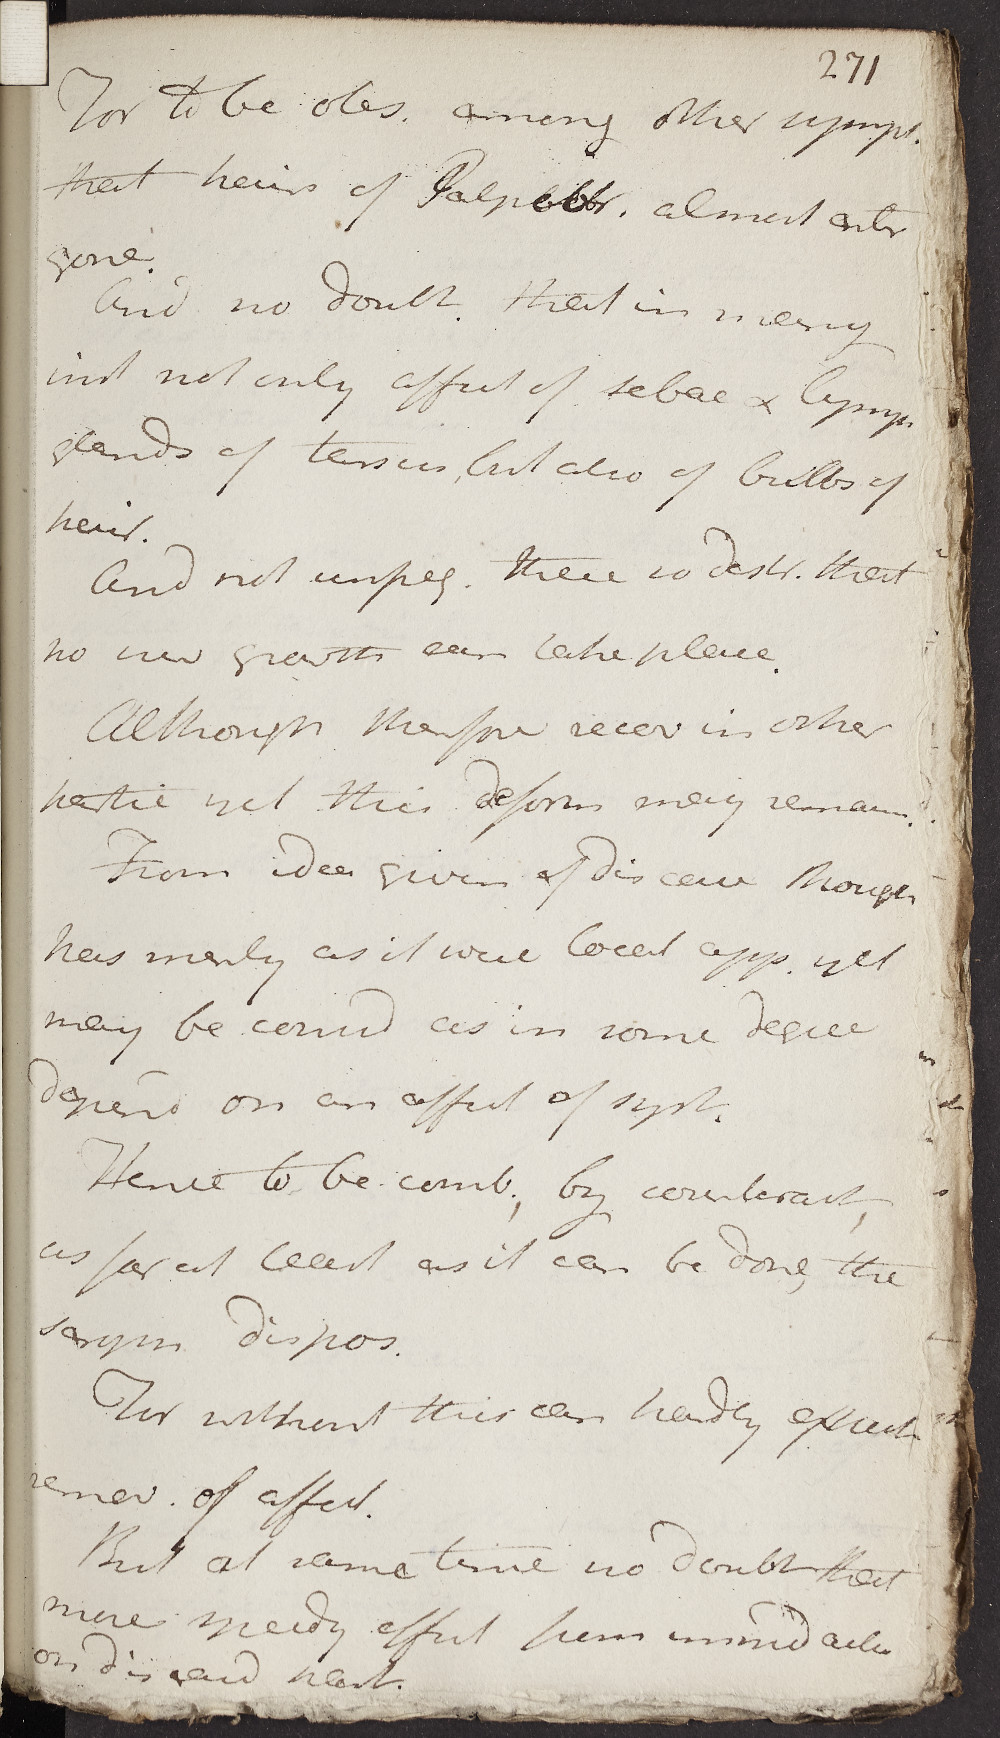 271
For to be obs. among other sympt.
that hairs of Palpebr. almost entir
gone.
And no doubt. that in many
inst not only affect of sebac & lymph
glands of tarsus, but also of bulbs of
hair.
And not unfreq. these so destr. that
no new growth can take place.
Although therefore recov in other
partic yet this deform may remain.
From idea given of disease though
has merly as it were local app. yet
may be consid as in some degree
depend on an affect of syst.
Hence to be comb, by counteract,
as far at least as it can be done, the
dispos.
For without this can hardly expect
remov. of affect.
But at same time no doubt that
more speedy effect from immed actn
on diseasd part.